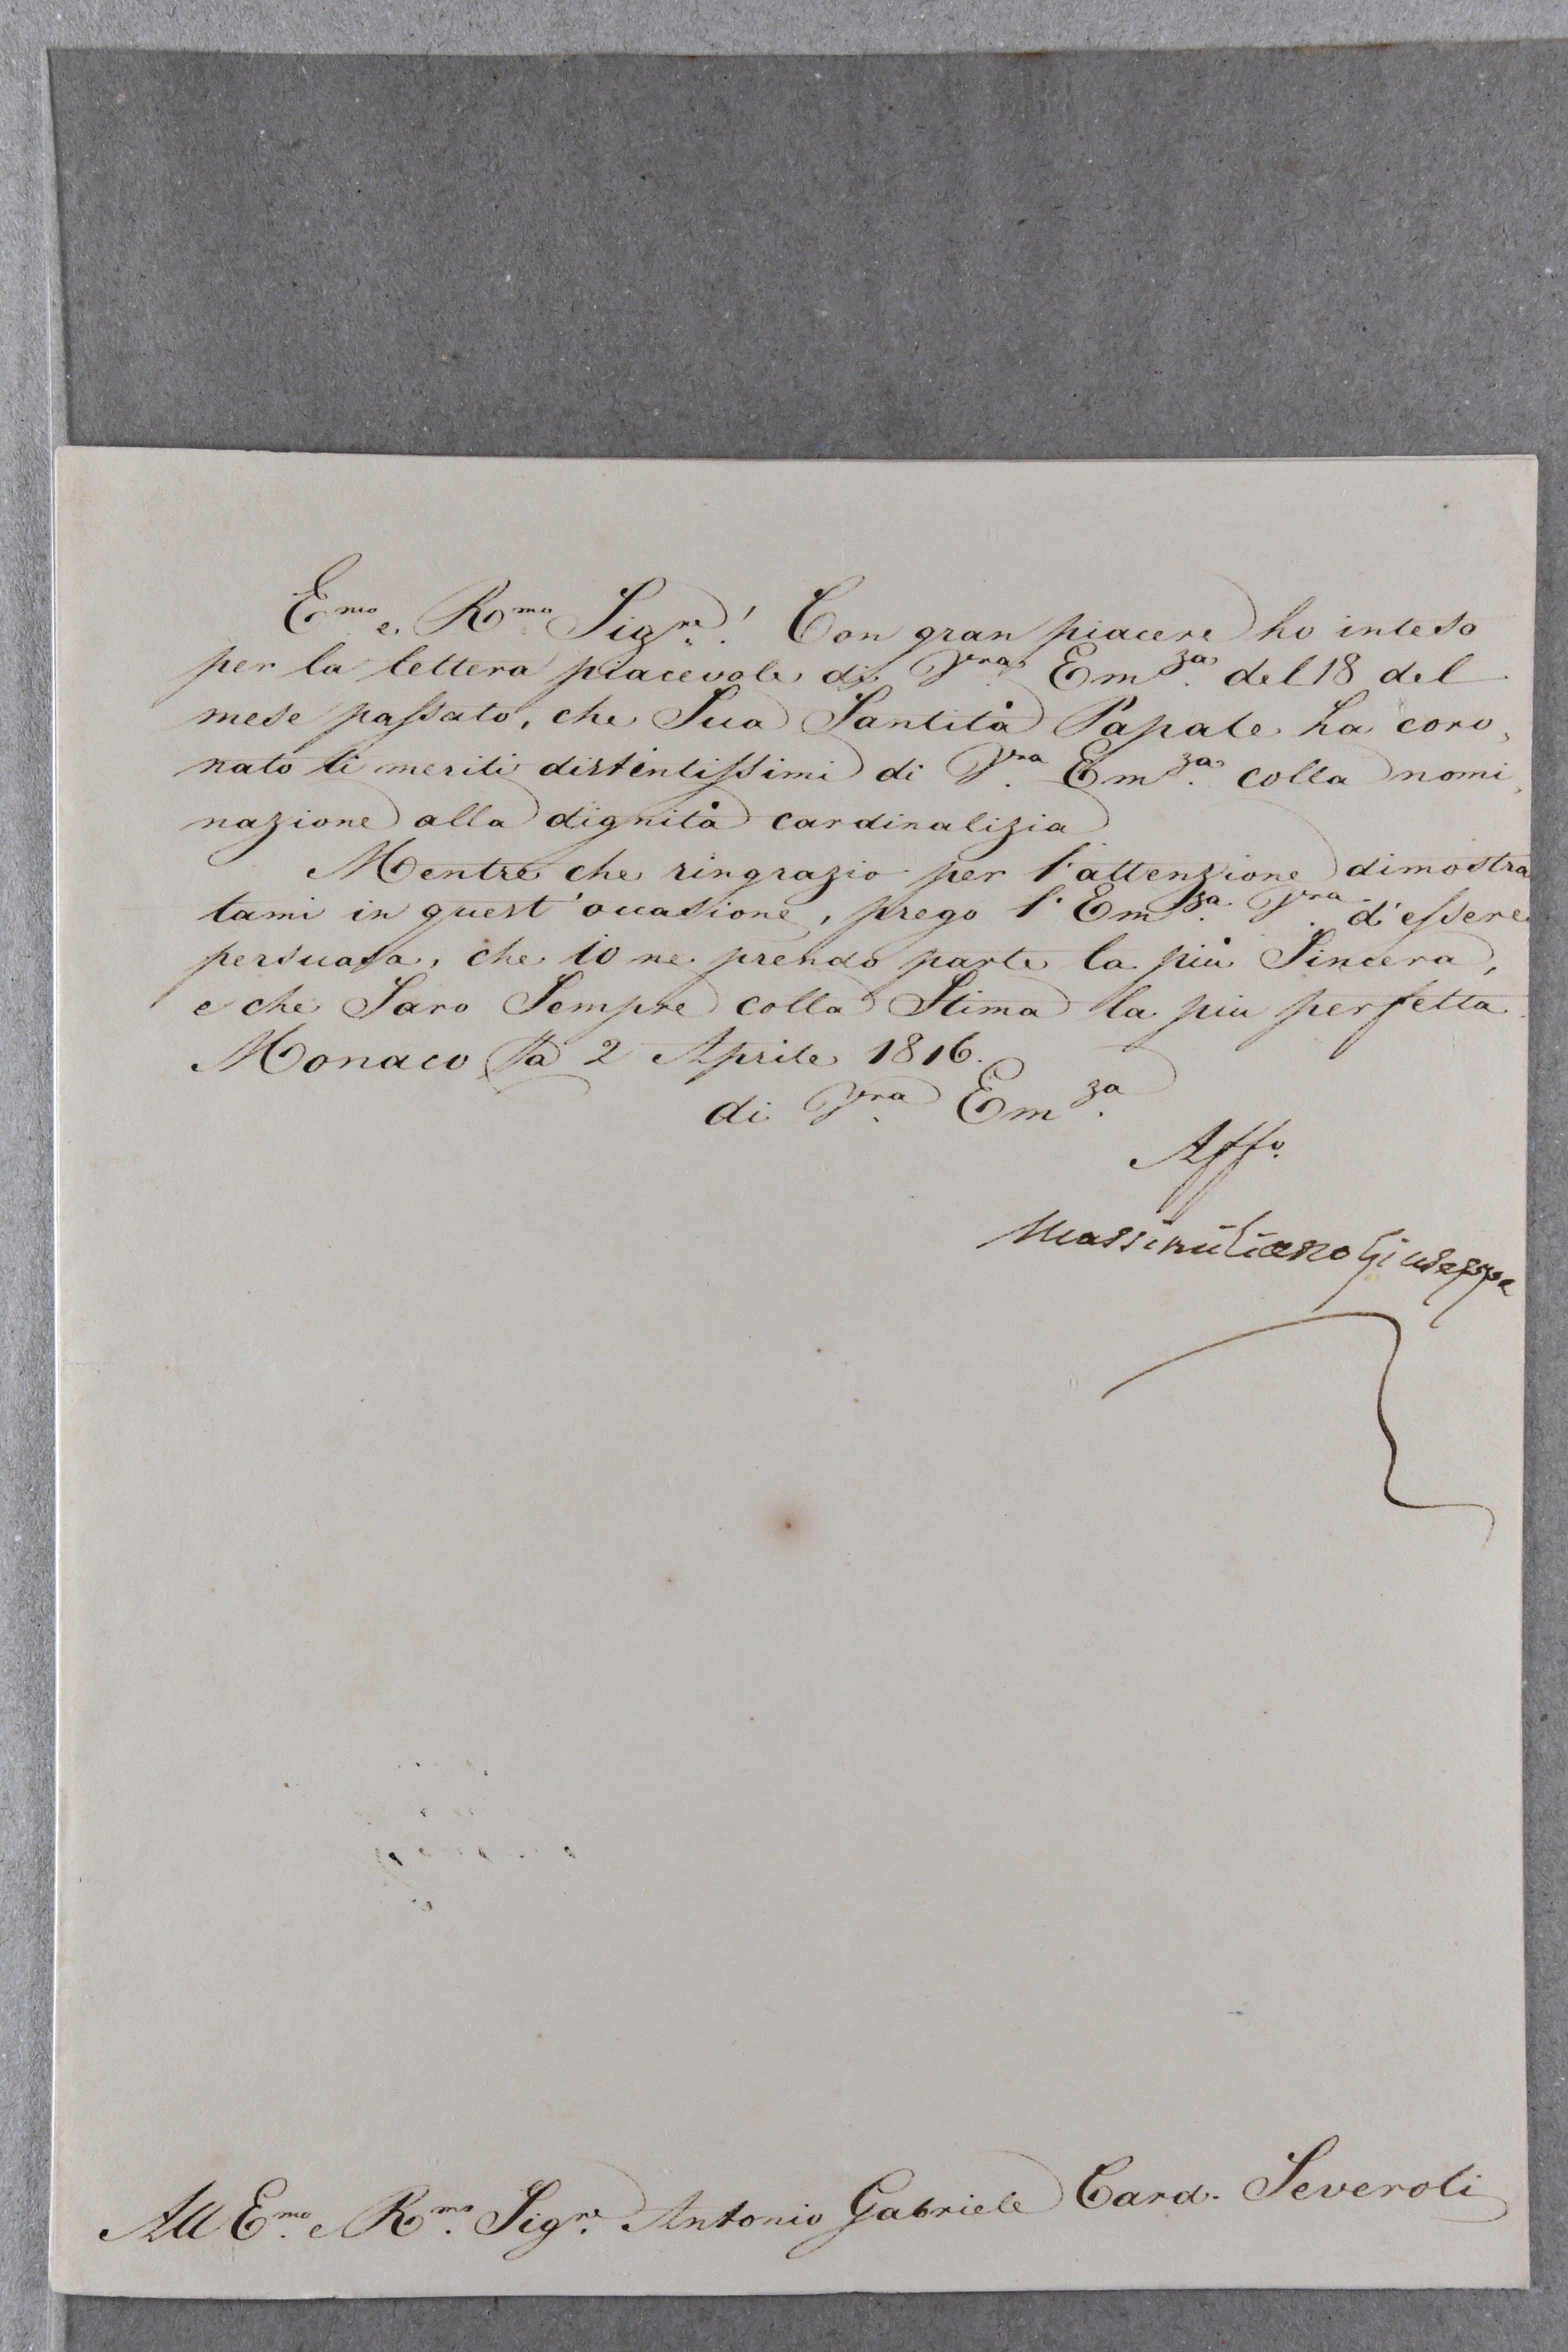 Emo e Rmo Sigre! Con gran piacere ho inteso
per la lettera piacevole di Vra Emza. del 18 del
mese passato, che Sua Santità Papale ha coro,
nato li meriti distintissimi di Vra Emza. colla nomi,
nazione alla dignità cardinalizia
Mentre che ringrazio per l'attenzione dimostra
tami in quest'occasione, prego l'Emza. Vra. d'essere
persuasa, che io ne prendo parte la più Sincera,
e che Saro Sempre colla Stima la piu perfetta.
Monaco 2 Aprile 1816.
di Vra. Emza.
Affo.
Massimiliano Giuseppe
All Emo. e Rmo. Sigre. Antonio Gabriele Card. Severoli